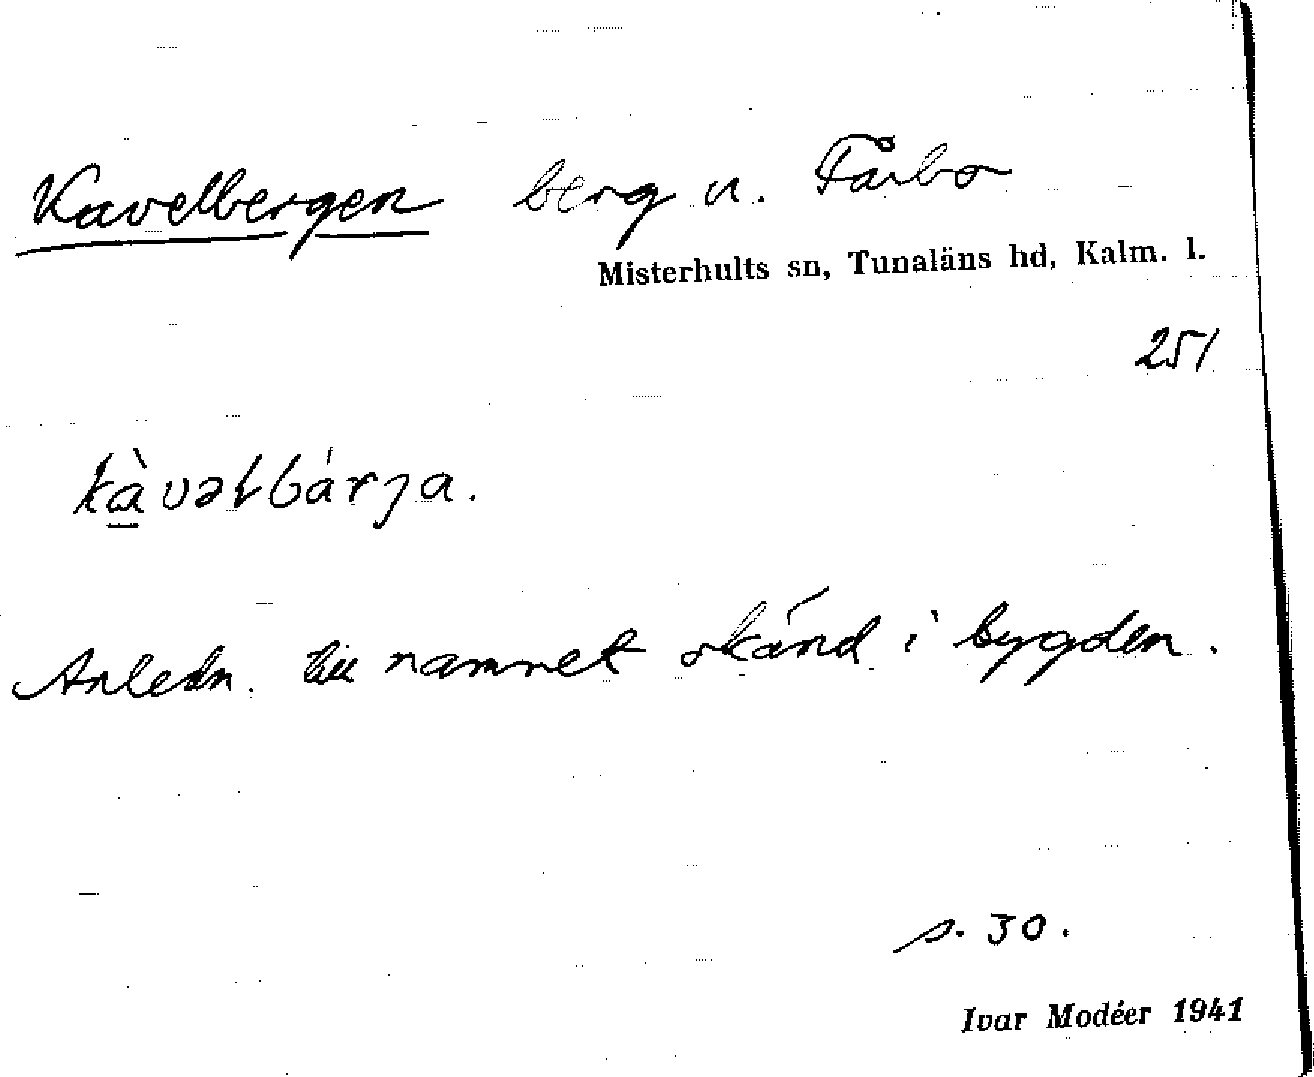 Kavelbergen berg u. Fårbo
Misterhults sn, Tunaläns hd, Kalm. l.
251
kàvəlbárja.
Anledn. till namnet okänd i bygden.
s. 30.
Ivar Modéer 1941